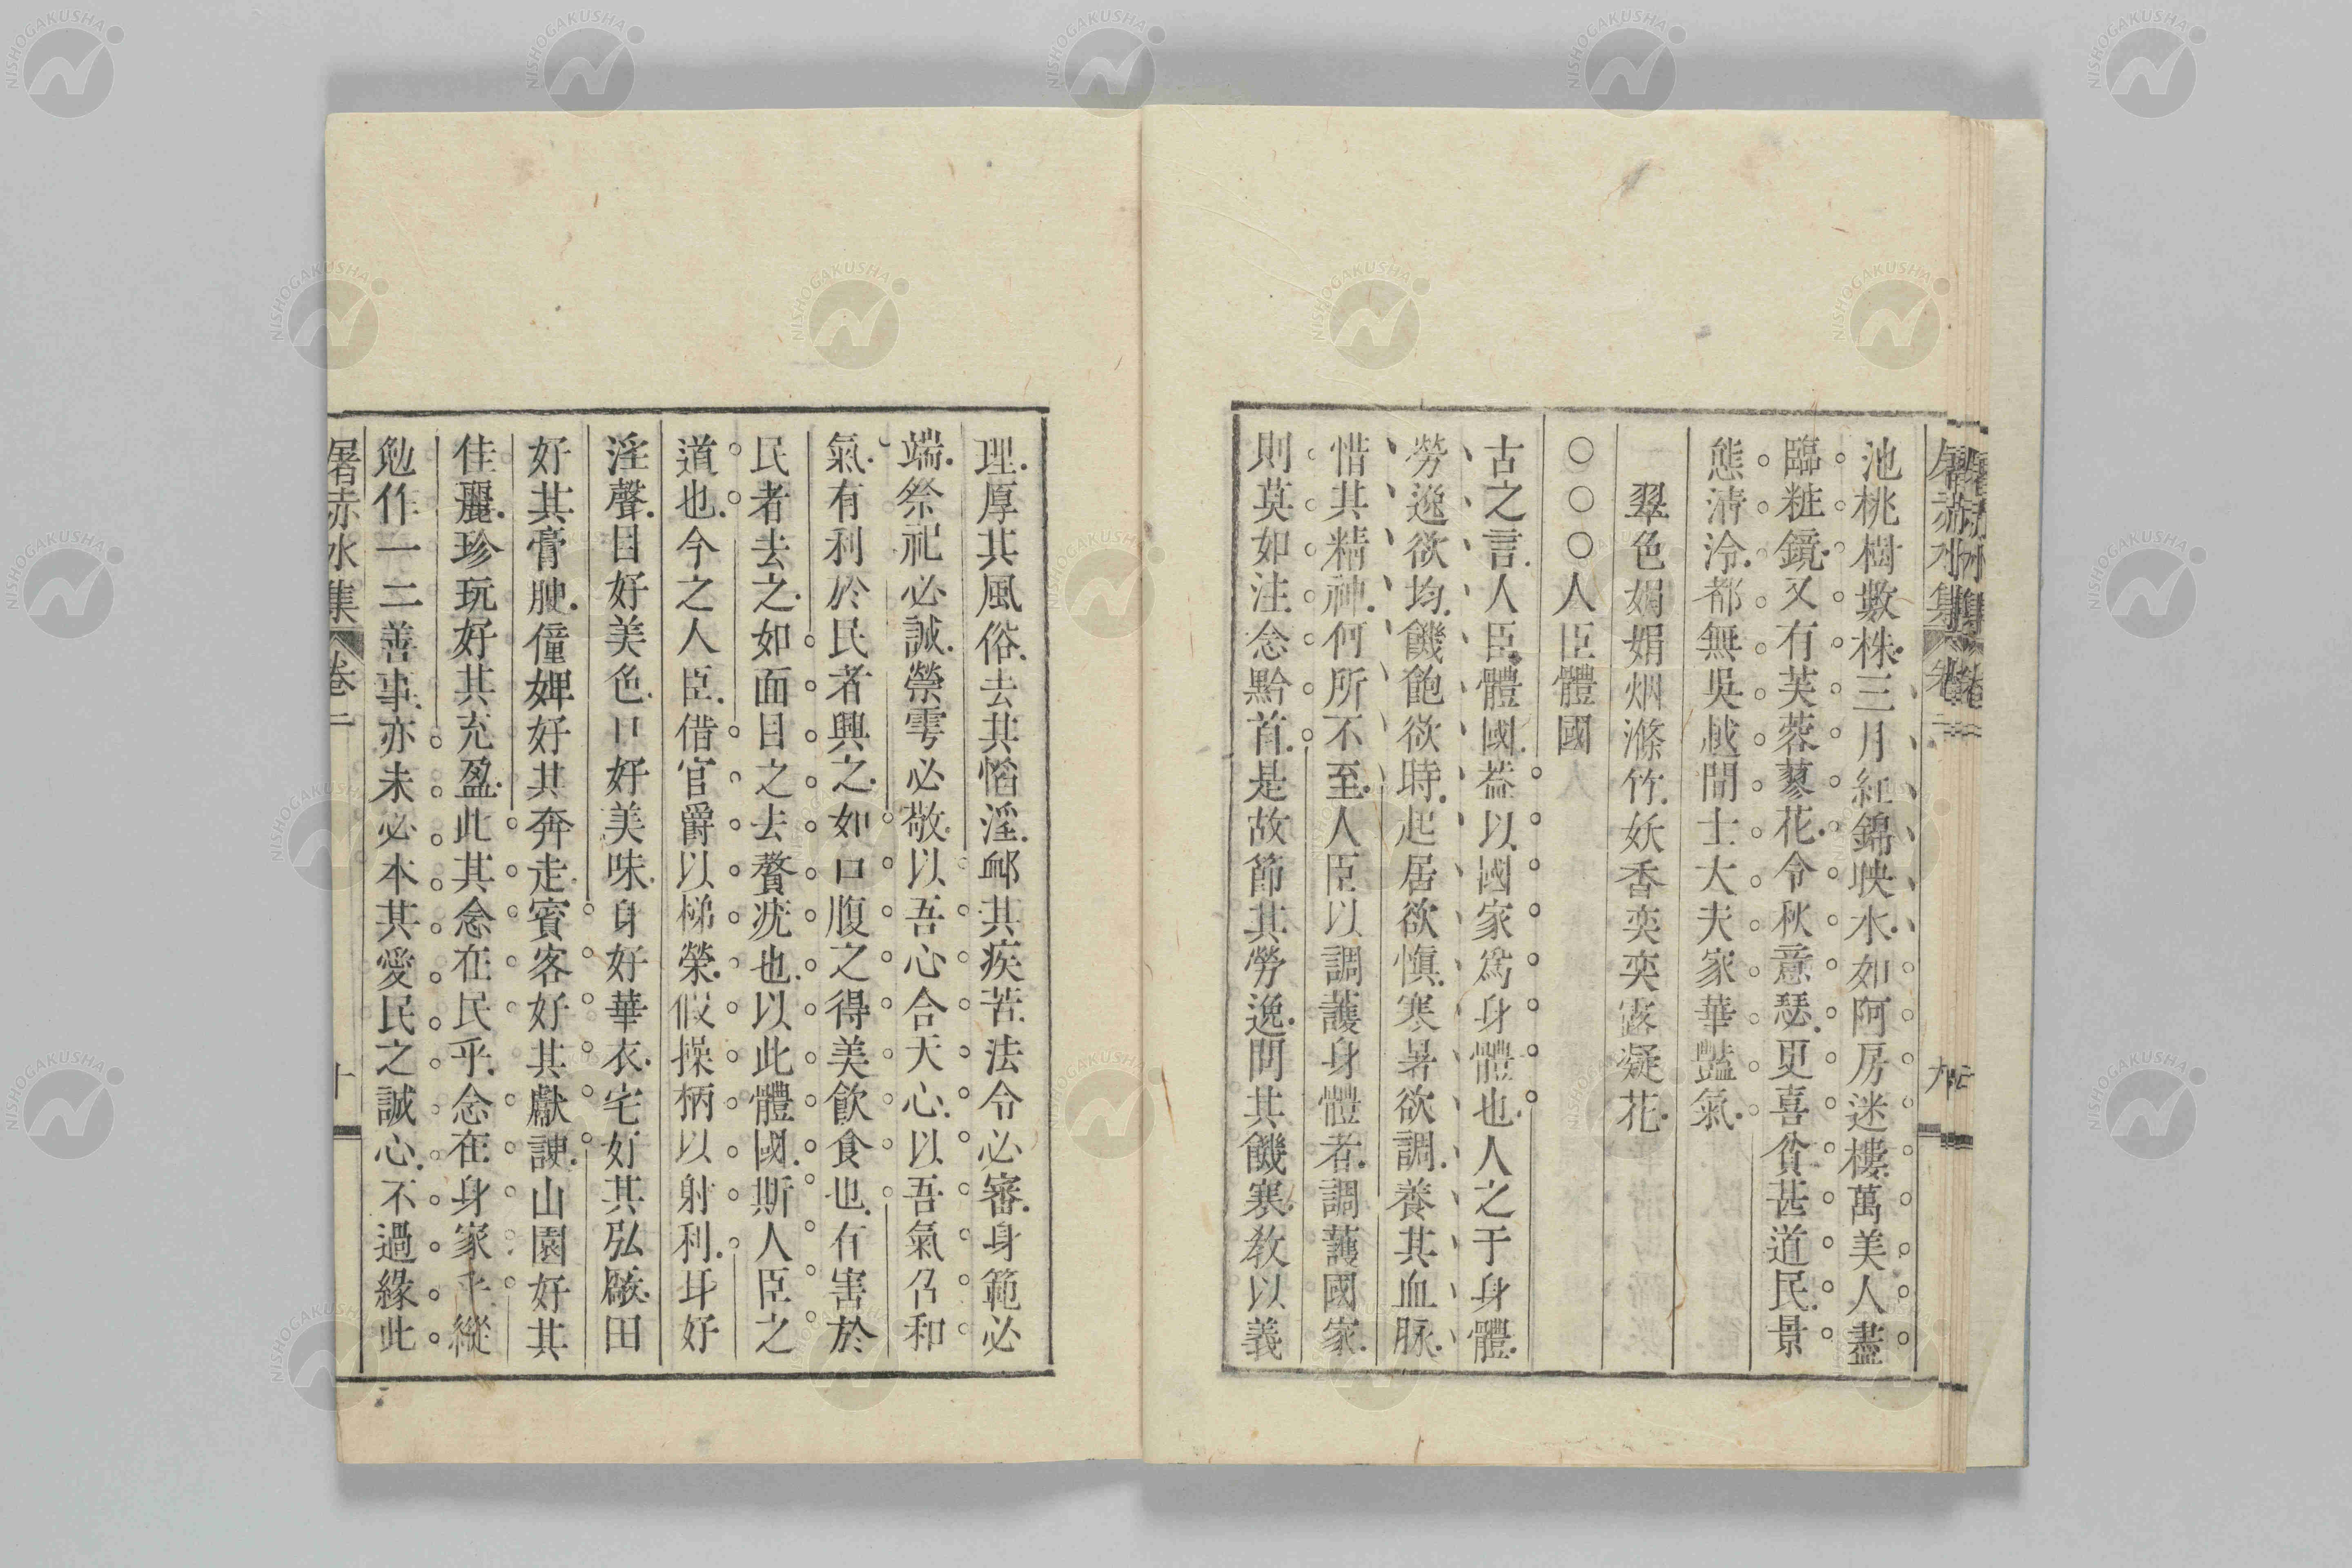 屠赤水集 卷二 九
池桃樹數株三月紅錦映水如阿房迷樓萬美人盡
臨粧鏡又有芙蓉蓼花令秋意瑟更喜貧甚道民景
態清泠都無吳越間士大夫家華豔氣
翠色娟娟烟滌竹妖香奕奕露凝花
○○○人臣體國
古之言人臣體國葢以國家爲身體也人之于身體
勞逸欲均饑飽欲時起居欲愼寒暑欲調養其血脉
惜其精神何所不至人臣以調護身體者調護國家
則莫如注念黔首是故節其勞逸問其饑寒敎以義
理厚其風俗去其慆淫邮其疾苦法令必審身範必
端祭祀必誠禜雩必敬以吾心合天心以吾氣召和
氣有利於民者興之如口腹之得美飲食也有害於
民者去之如面目之去贅疣也以此體國斯人臣之
道也今之人臣借官爵以梯榮假操柄以射利耳好
淫聲目好美色口好美味身好華衣宅好其弘厰田
好其膏腴僮婢好其奔走賓客好其獻諛山園好其
佳麗珍玩好其充盈此其念在民乎念在身家乎縱
勉作一二善事亦未必本其愛民之誠心不過緣此
屠赤水集 卷二 十
NISHOGAKUSHA